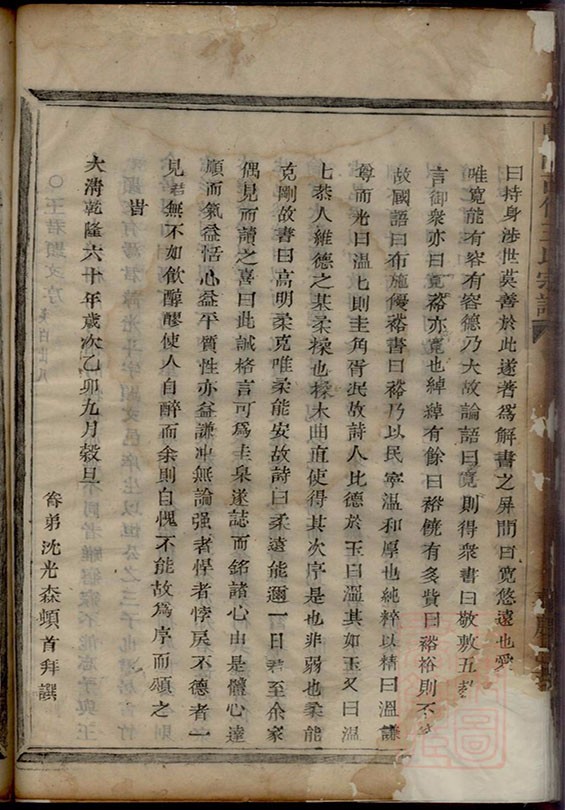 曰持身涉世莫善於此遂著爲解書之屏間曰寛悠遠也愛
唯寛能有容有容德乃大故論語曰寛則得衆書曰敬敷五教
言御衆亦曰寛裕亦寛也綽綽有餘曰裕饒有多貲曰裕裕則不
故國語曰布施優裕書曰裕乃以民寧温和厚也純粹以精曰温謙
尊而光曰温温則圭角胥泯故詩人比德於玉曰温其如玉又曰温
温恭人維德之基柔揉也揉木曲直使得其次序是也非弱也柔能
克剛故書曰高明柔克唯柔能安故詩曰柔遠能邇一日君至余家
偶見而讀之喜曰此誠格言可爲圭臬遂誌而銘諸心由是體心達
順而氣益恬心益平質性亦益謙冲無論强者悍者悖戾不德者一
見君無不如飲醇醪使人自醉而余則自愧不能故爲序而願之
旹
大清乾隆六十年歲次乙卯九月穀旦
眷弟沈光森頓首拜譔
王氏宗譜